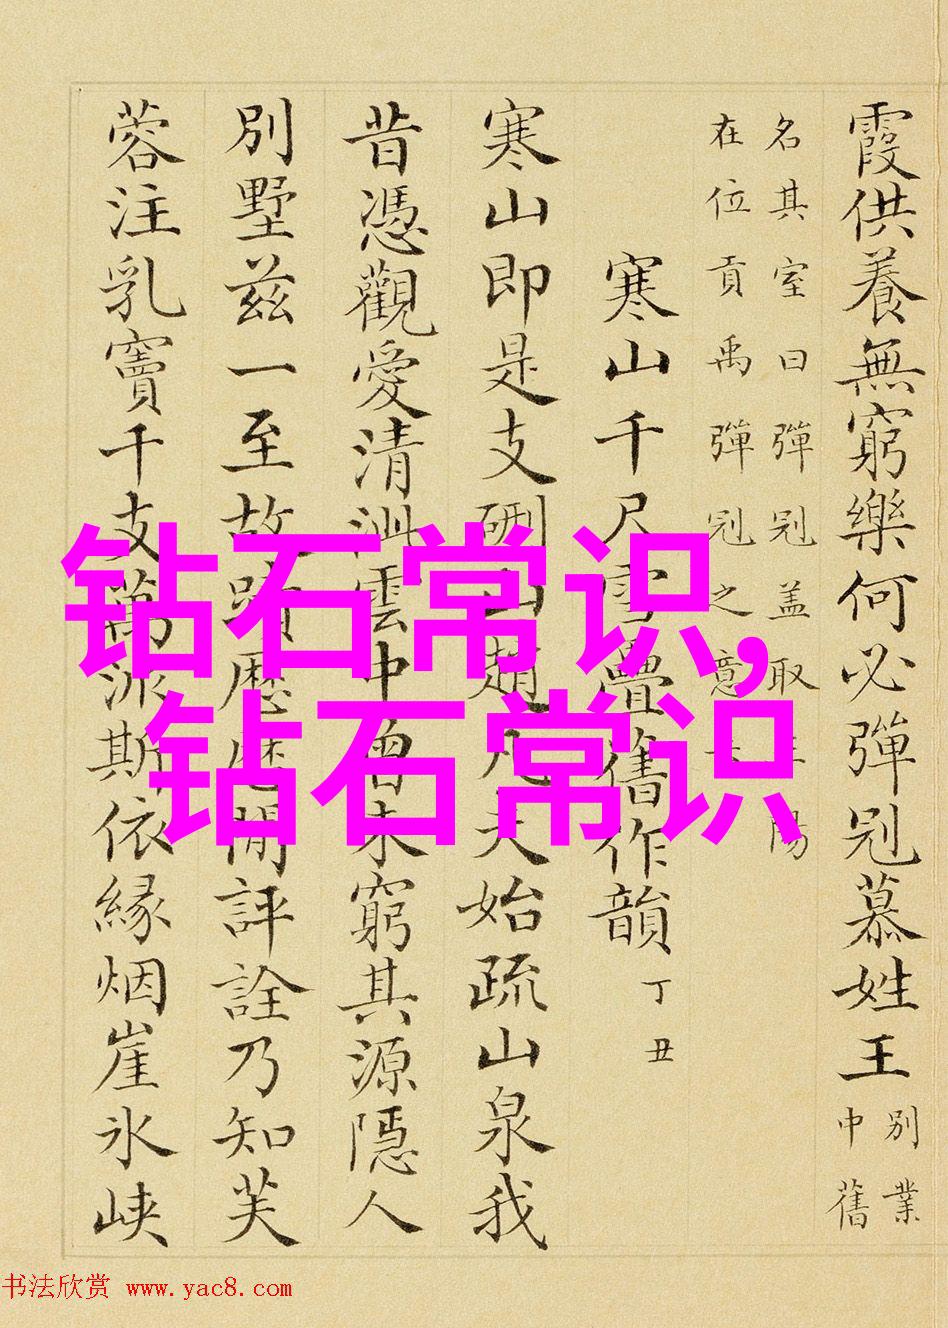 霞供養無窮樂何必彈冠慕姓王
別業
中舊
名其室曰彈冠蓋取
陽
在位貢禹彈冠之意
寒山千尺雪疊舊作韻
丁丑
寒山即是支硎山趙凡夫始疏山泉我
昔憑觀愛清泚雲中曾未窮其源隱人
別墅茲一至故蹟歷歷閒評詮乃知芙
蓉注乳竇千支萬派斯依緣烟崖氷峽
钻石常识,
钻石常识
书法欣赏 www.yac8.com